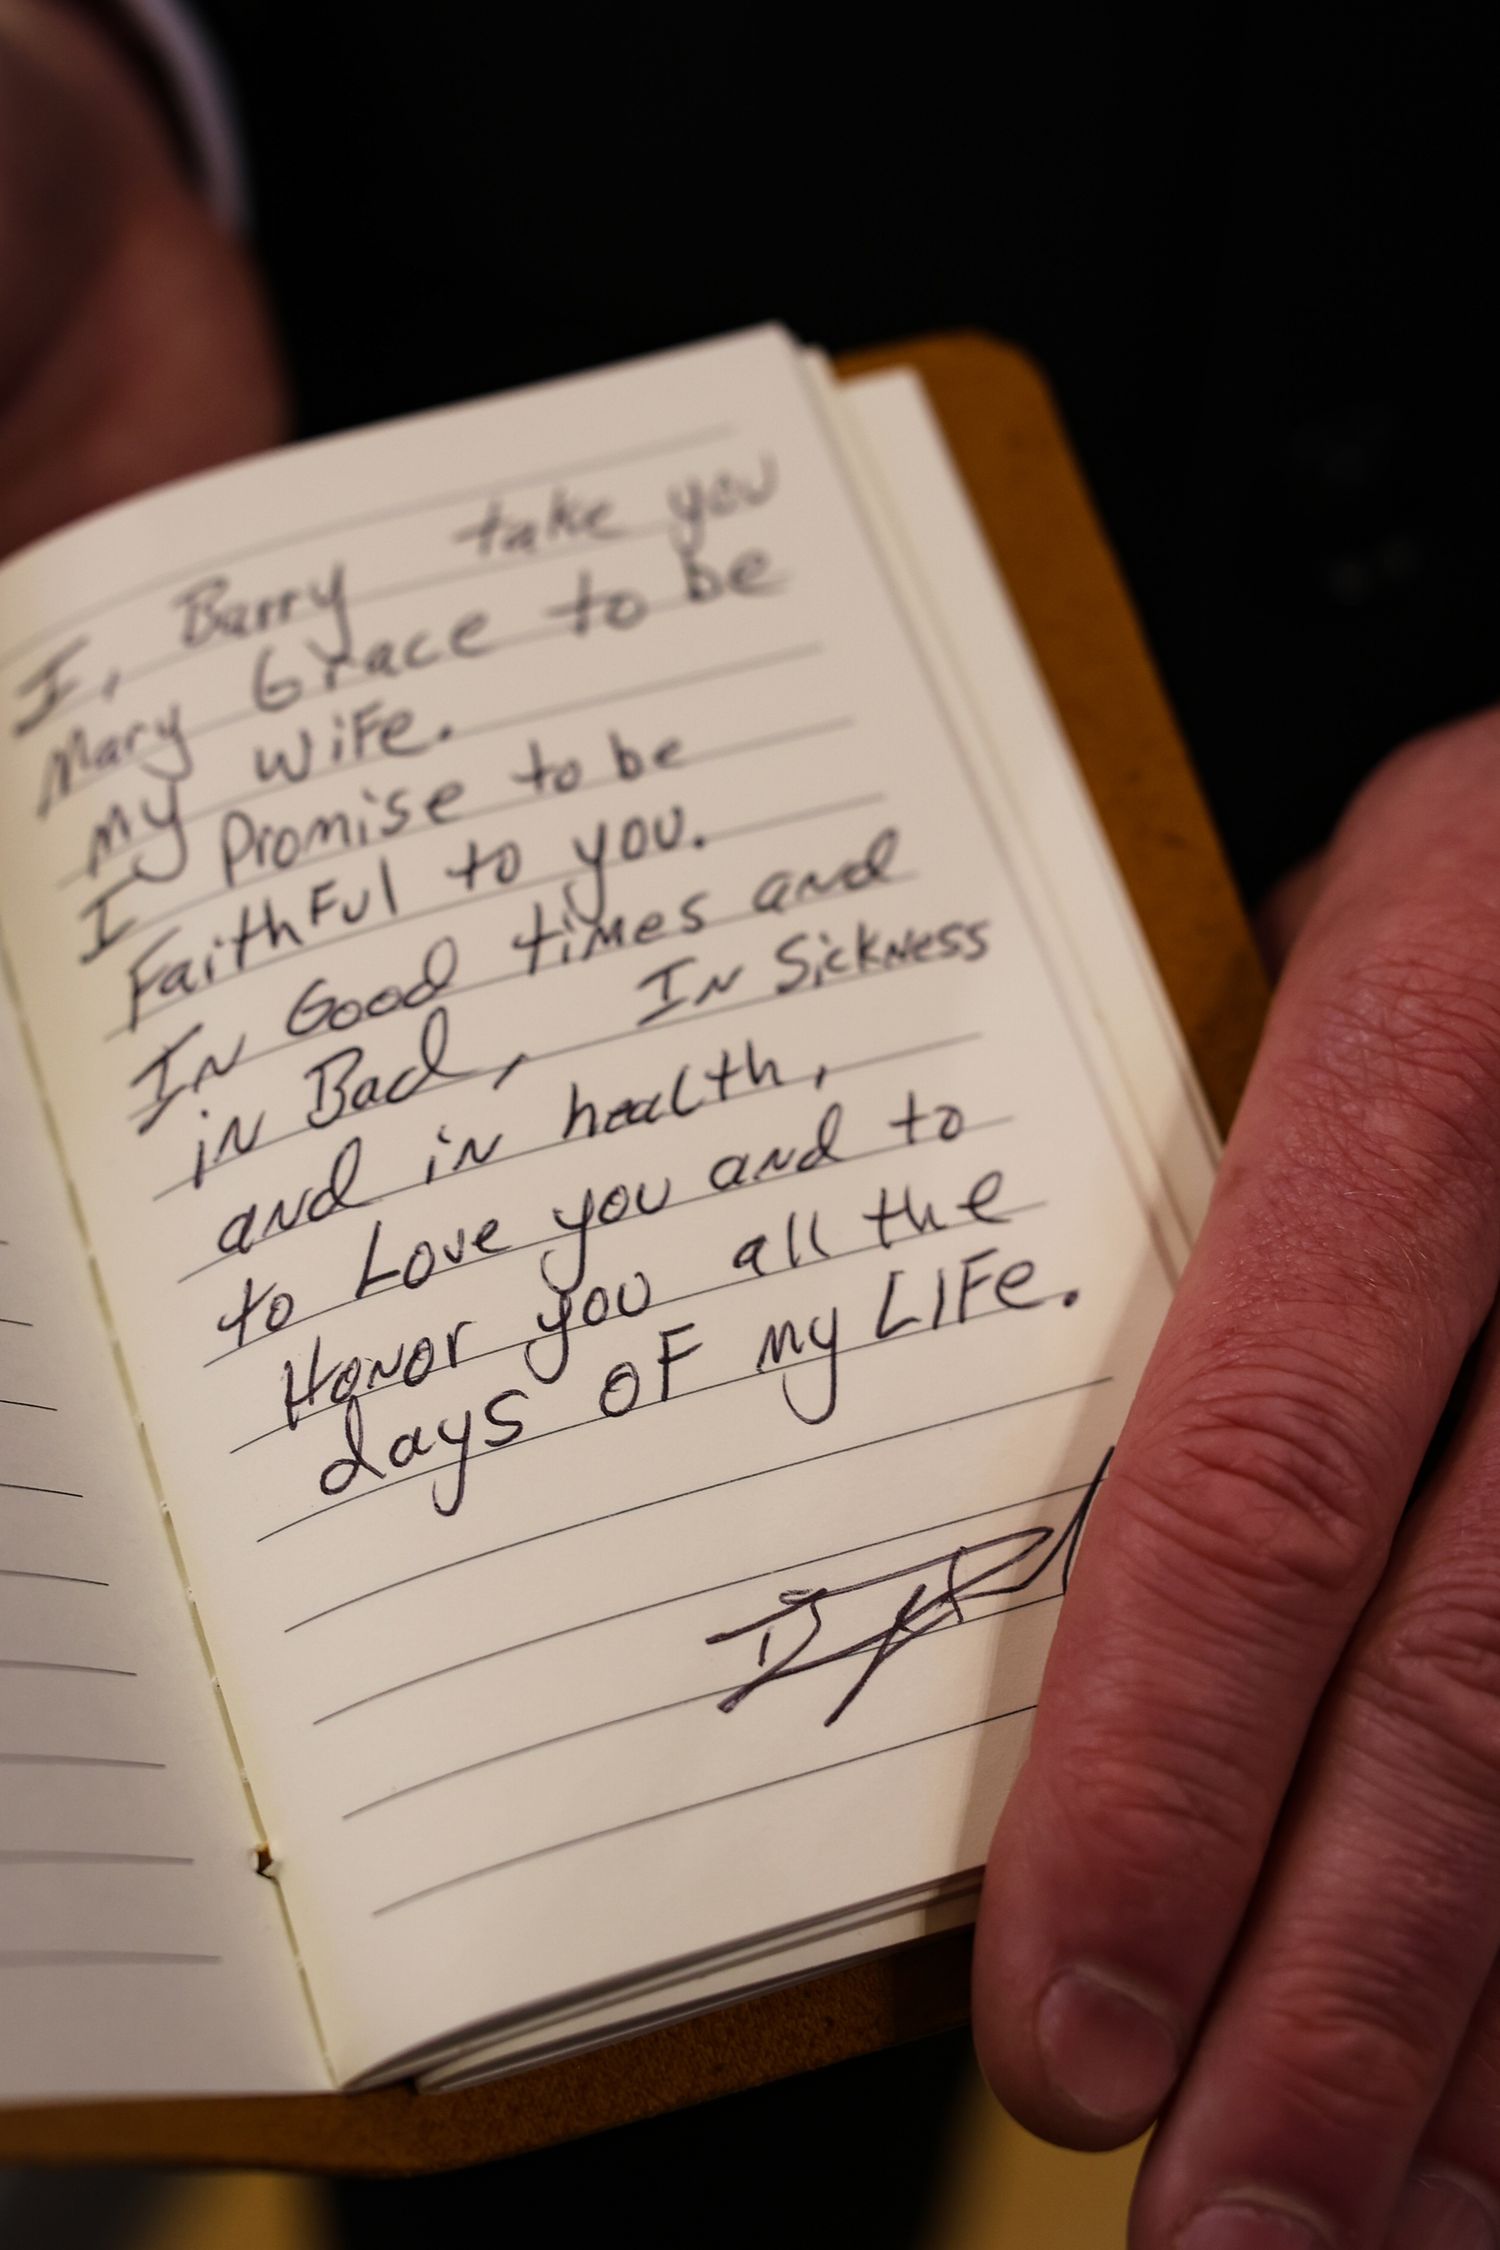 I, Barry take you
Mary Grace to be
my wiFe.
I Promise to be
FaithFul to you.
IN Good times and
iN Bad, IN SickNess
and in health,
to Love you and to
HoNor you all the
days oF my LIFe.